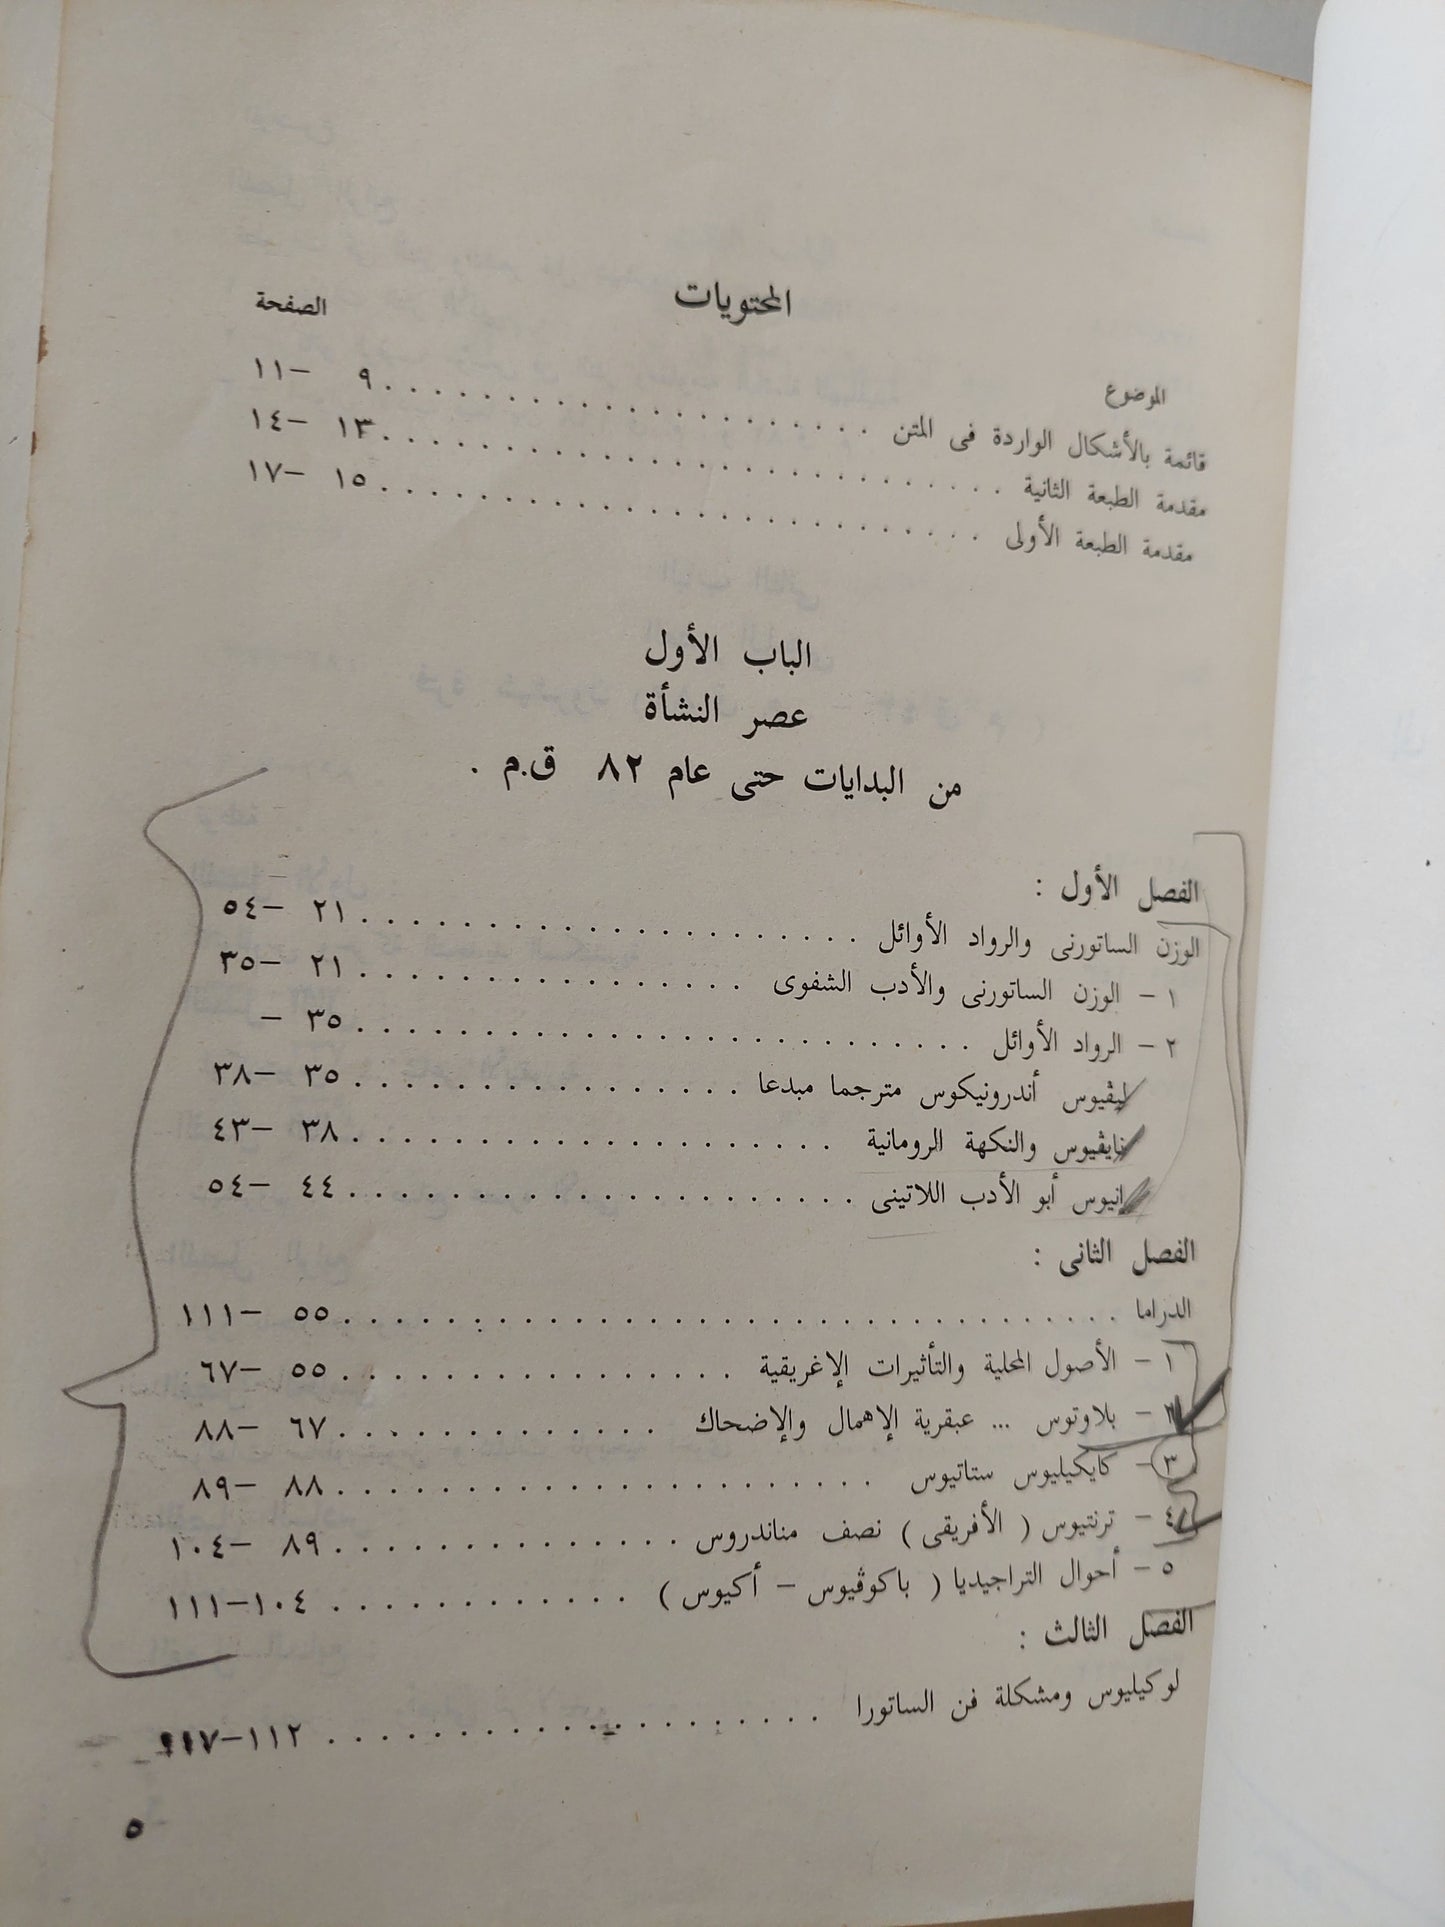 المحتويات
الموضوع
الصفحة
قائمة بالأشكال الواردة فى المتن . . . . . . . . . . . . . . . . . . . . ٩ –١١
مقدمة الطبعة الثانية . . . . . . . . . . . . . . . . . . . . . . . . . ١٣ –١٤
مقدمة الطبعة الأولى . . . . . . . . . . . . . . . . . . . . . . . . ١٥ –١٧
الباب الأول
عصر النشأة
من البدايات حتى عام ٨٢ ق.م .
الفصل الأول :
الوزن الساتورنى والرواد الأوائل . . . . . . . . . . . . . . . . . . . . ٢١ –٥٤
١ – الوزن الساتورنى والأدب الشفوى . . . . . . . . . . . . . . . . ٢١ –٣٥
٢ – الرواد الأوائل . . . . . . . . . . . . . . . . . . . . . . . . . ٣٥ –
ليڤيوس أندرونيكوس مترجما مبدعا . . . . . . . . . . . . . . . . ٣٥ –٣٨
نايڤيوس والنكهة الرومانية . . . . . . . . . . . . . . . . . . . ٣٨ –٤٣
انيوس أبو الأدب اللاتينى . . . . . . . . . . . . . . . . . . . . ٤٤ –٥٤
الفصل الثانى :
الدراما . . . . . . . . . . . . . . . . . . . . . . . . . . . . . . . ٥٥ –١١١
١ – الأصول المحلية والتأثيرات الإغريقية . . . . . . . . . . . . . . . . ٥٥ –٦٧
٢ – بلاوتوس ... عبقرية الإهمال والإضحاك . . . . . . . . . . . . . ٦٧ –٨٨
٣ – كايكيليوس ستاتيوس . . . . . . . . . . . . . . . . . . . . . . ٨٨ –٨٩
٤ – ترنتيوس ( الأفريقى ) نصف مناندروس . . . . . . . . . . . . . . ٨٩ –١٠٤
٥ – أحوال التراجيديا ( باكوڤيوس – أكيوس ) . . . . . . . . . . . . ١٠٤–١١١
الفصل الثالث :
لوكيليوس ومشكلة فن الساتورا . . . . . . . . . . . . . . . . . . . . ١١٢–١١٧
٥